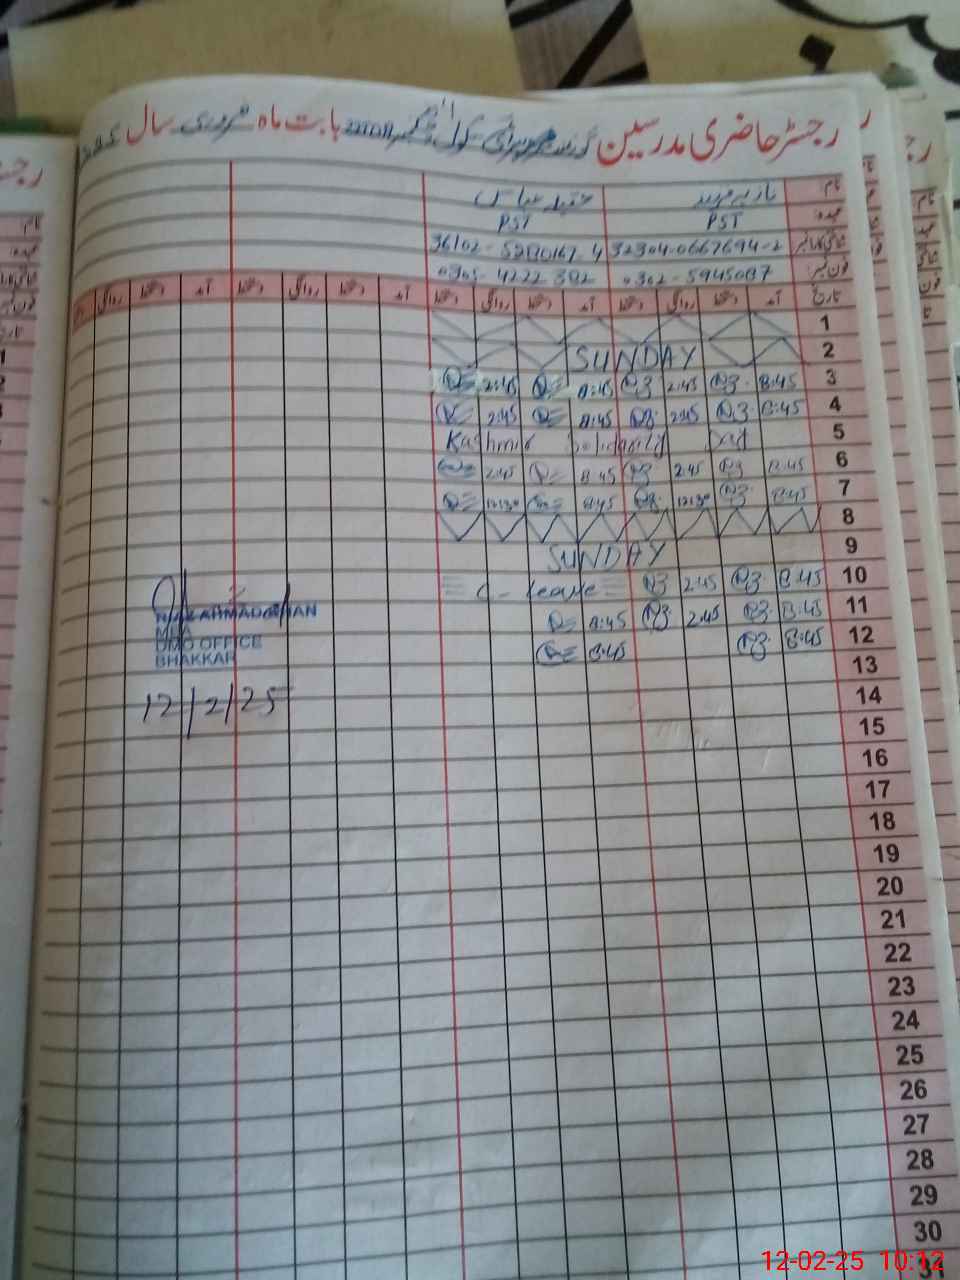 رجسٹر حاضری مدرسین گورنمنٹ پرائمری سکول بابت ماہ فروری سال
نام
عہدہ: PST PST
شناختی کارڈ نمبر 32304-0667694-2 36102-5280167-4
فون نمبر: 0302-5945087 0305-4222382
تاریخ آمد دستخط روانگی دستخط آمد دستخط روانگی دستخط آمد دستخط روانگی دستخط آمد دستخط روانگی
1
2 SUNDAY
3 8:45 2:45 8:45 2:45
4 8:45 2:45 8:45 2:45
5 Kashmir Solidarity Day
6 8:45 2:45 8:45 2:45
7 8:45 12:30 8:45 12:30
8
9 SUNDAY
10 8:45 2:45 C-leave
11 8:45 2:45 8:45
12 8:45 8:45
13
14
15
16
17
18
19
20
21
22
23
24
25
26
27
28
29
30
31
MEA
DMO OFFICE
BHAKKAR
12/2/25
12-02-25 10:12